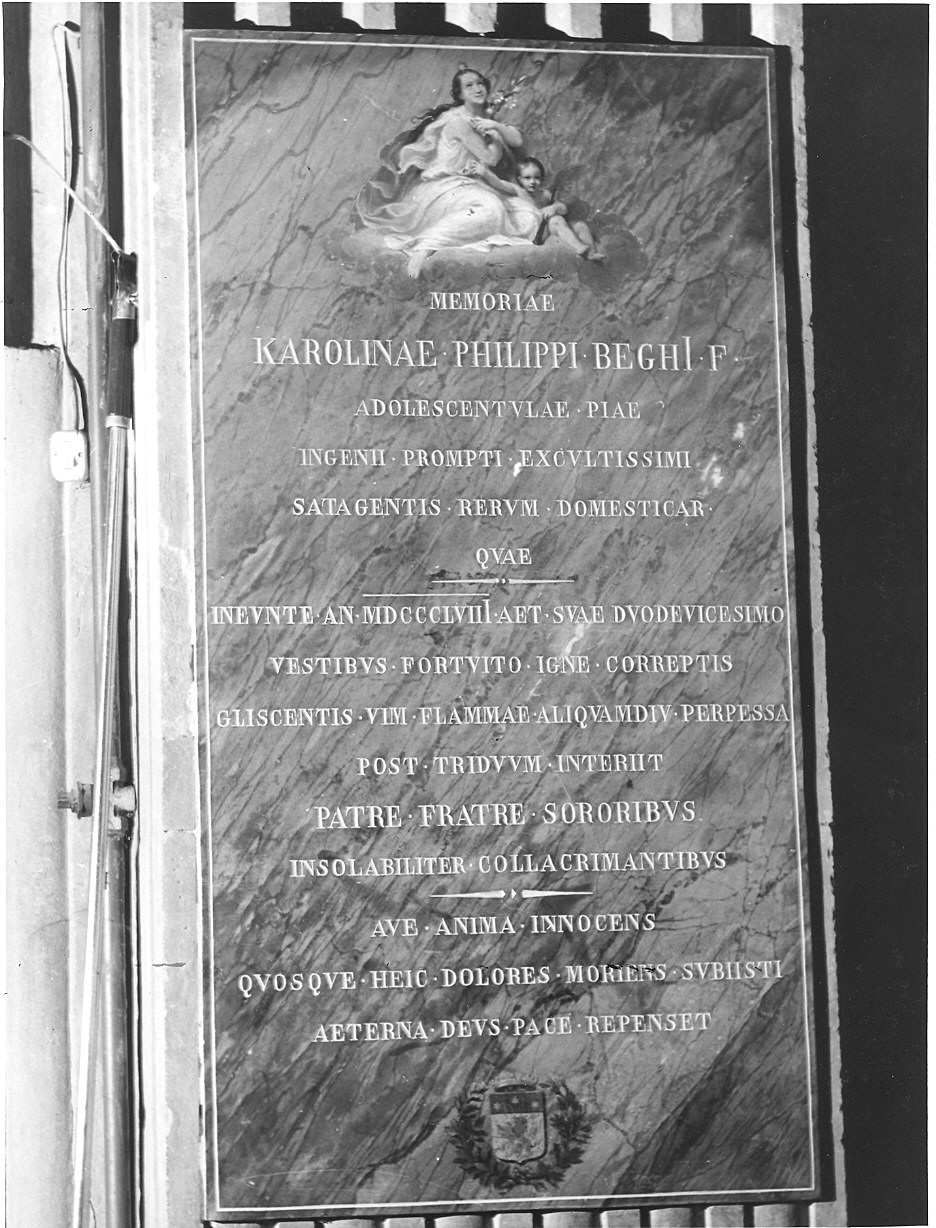 MEMORIAE
KAROLINAE · PHILIPPI · BEGHI · F ·
ADOLESCENTVLAE · PIAE
INGENII · PROMPTI · EXCVLTISSIMI
SATAGENTIS · RERVM · DOMESTICAR ·
QVAE
INEVNTE · AN · MDCCCLVIIII · AET · SVAE DVODEVICESIMO
VESTIBVS · FORTVITO · IGNE · CORREPTIS
GLISCENTIS · VIM · FLAMMAE · ALIQVAMDIV · PERPESSA
POST · TRIDVVM · INTERIIT
PATRE · FRATRE · SORORIBVS
INSOLABILITER · COLLACRIMANTIBVS
AVE · ANIMA · INNOCENS
QVOSQVE · HEIC · DOLORES · MORIENS · SVBIISTI
AETERNA · DEVS · PACE · REPENSET